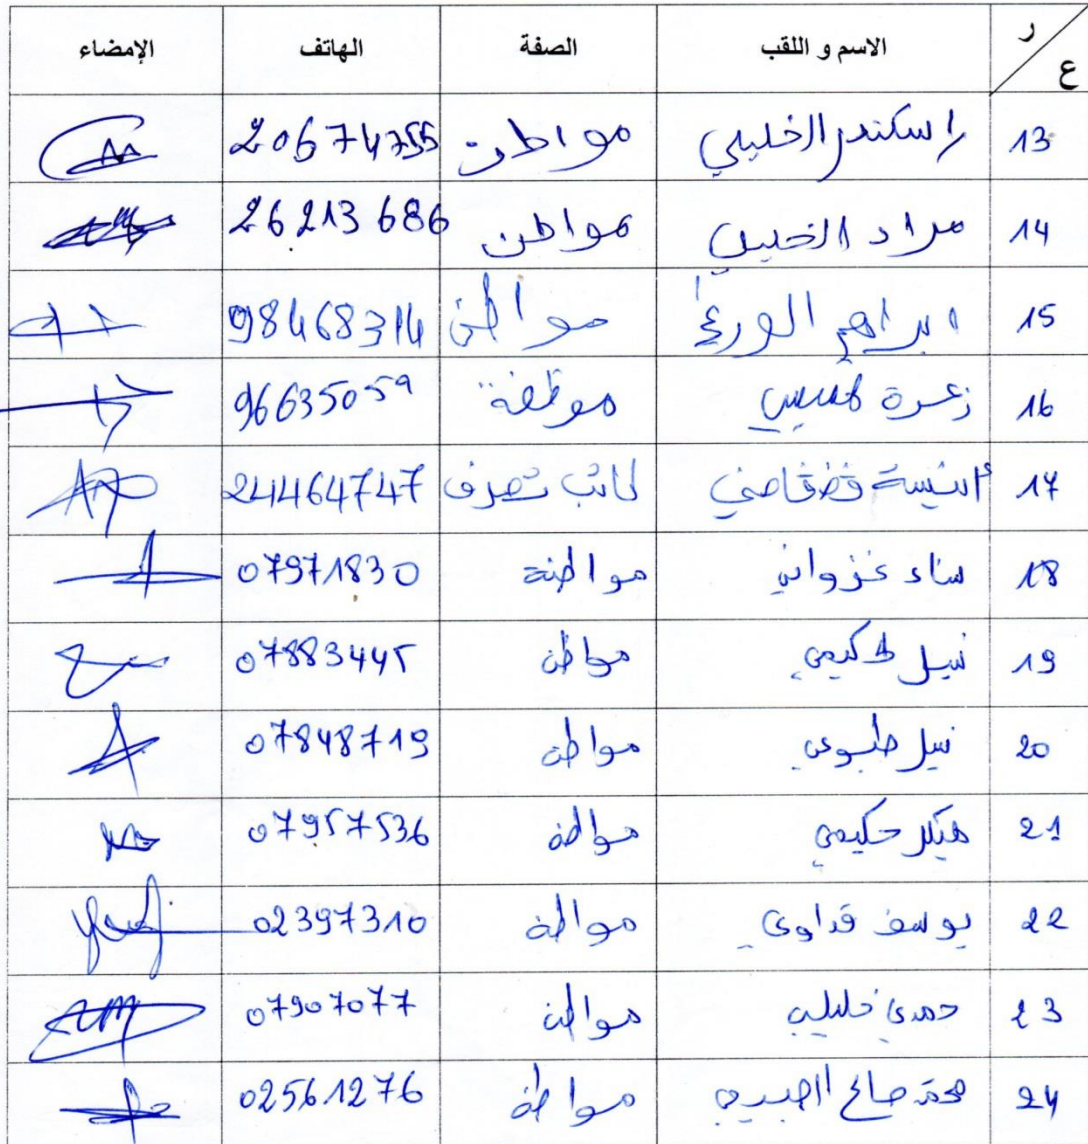 ر ع الاسم و اللقب الصفة الهاتف الإمضاء
13 اسكندر الخليلي مواطن 20674755
14 مراد الخليلي مواطن 26213686
15 ابراهيم الورغي مواطن 98468314
16 زهرة موظفة 96635059
17 أنيسة قضقاضي كاتب تصرف 24464747
18 سناء غزواني مواطنة 07971830
19 نبيل حكيمي مواطن 07883445
20 نبيل مواطن 07848719
21 هيكل حكيمي مواطن 07957536
22 يوسف قداوي مواطن 02397310
23 حمدي خليلي مواطن 07907077
24 محمد صالح مواطن 02561276